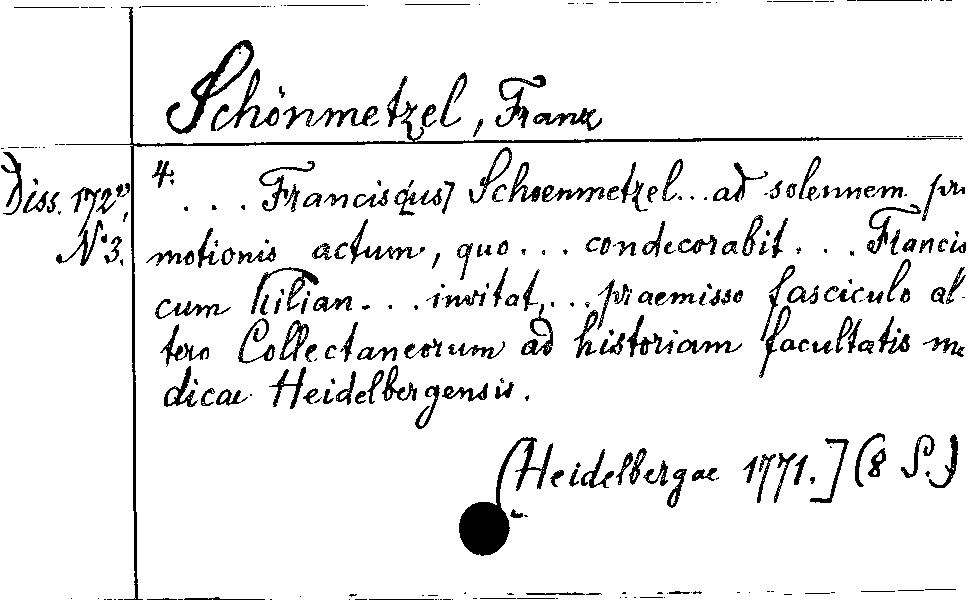 Schönmetzel, Franz
4:
Diss. 172²⁾,
N° 3.
... Francisqus] Schoenmetzel... ad solennem pro
motionis actum, quo... condecorabit... Francis
cum Kilian... invitat,... praemisso fasciculo al-
tero Collectaneorum ad historiam facultatis me
dicae Heidelbergensis.
(Heidelbergae 1771.] (8 S.)